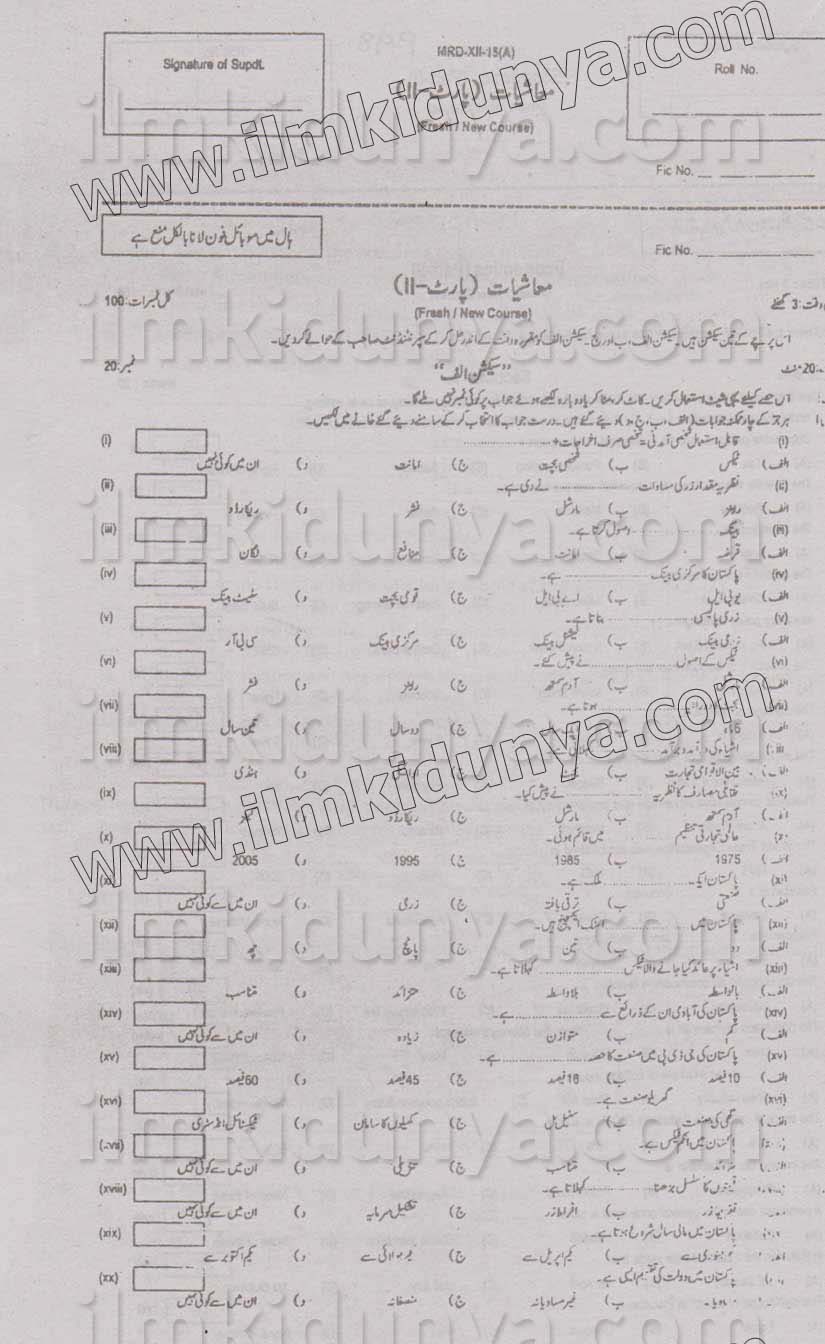 MRD-XII-15(A)
Signature of Supdt.
Roll No.
معاشیات (پارٹ-II)
(Fresh / New Course)
www.ilmkidunya.com
Fic No.
ہال میں موبائل فون لانا بالکل منع ہے
Fic No.
معاشیات (پارٹ-II)
(Fresh / New Course)
وقت: 3 گھنٹے
کل نمبرات: 100
اس پرچے کے تین سیکشن ہیں۔ سیکشن الف، ب اور ج۔ سیکشن الف کو مقررہ وقت کے اندر حل کر کے سپرنٹنڈنٹ صاحب کے حوالے کردیں۔
20 منٹ
"سیکشن الف"
نمبر: 20
اس حصے کیلئے یہی شیٹ استعمال کریں۔ کاٹ کر، مٹا کر یا دوبارہ لکھے ہوئے جواب پر کوئی نمبر نہیں ملے گا۔
ہر جز کے چار ممکنہ جوابات (الف، ب، ج، د) دیئے گئے ہیں۔ درست جواب کا انتخاب کر کے سامنے دیئے گئے خانے میں لکھیں۔
(i) قابل استعمال شخصی آمدنی = شخصی صرف اخراجات + ............ (i)
الف) ٹیکس ب) شخصی بچت ج) امانت د) ان میں کوئی نہیں
(ii) نظریہ مقدار زر کی مساوات ............ نے دی ہے۔ (ii)
الف) رابنز ب) مارشل ج) فشر د) ریکارڈو
(iii) بینک ............ وصول کرتا ہے۔ (iii)
الف) قرضہ ب) امانت ج) منافع د) لگان
(iv) پاکستان کا مرکزی بینک ............ ہے۔ (iv)
الف) یو بی ایل ب) اے بی ایل ج) قومی بچت د) سٹیٹ بینک
(v) زری پالیسی ............ بناتا ہے۔ (v)
الف) زرعی بینک ب) نیشنل بینک ج) مرکزی بینک د) سی بی آر
(vi) ٹیکس کے اصول ............ نے پیش کئے۔ (vi)
ب) آدم سمتھ ج) رابنز د) فشر
(vii) ............ ہوتا ہے۔ (vii)
الف) ج) دو سال د) تین سال
اشیاء کی درآمد و برآمد (viii)
بین الاقوامی تجارت ب) د) ہنڈی
(ix) تقابلی مصارف کا نظریہ ............ نے پیش کیا۔ (ix)
آدم سمتھ ب) مارشل ج) ریکارڈو د)
عالمی تجارتی تنظیم ............ میں قائم ہوئی۔ (x)
الف) 1975 ب) 1985 ج) 1995 د) 2005
(xi) پاکستان ایک ............ ملک ہے۔ (xi)
صنعتی ب) ترقی یافتہ ج) زرعی د) ان میں سے کوئی نہیں
(xii) پاکستان میں ............ اسٹاک ایکسچینج ہیں۔ (xii)
الف) دو ب) تین ج) پانچ د) چھ
(xiii) اشیاء پر عائد کیا جانے والا ٹیکس ............ کہلاتا ہے۔ (xiii)
الف) بالواسطہ ب) بلاواسطہ ج) متزائد د) متناسب
(xiv) پاکستان کی آبادی ان کے ذرائع سے ............ ہے۔ (xiv)
الف) کم ب) متوازن ج) زیادہ د) ان میں سے کوئی نہیں
(xv) پاکستان کی جی ڈی پی میں صنعت کا حصہ ............ ہے۔ (xv)
الف) 10 فیصد ب) 18 فیصد ج) 45 فیصد د) 60 فیصد
(xvi) گھریلو صنعت ہے۔ (xvi)
الف) گھی کی صنعت ب) سٹیل مل ج) کھیلوں کا سامان د) ٹیکسٹائل انڈسٹری
پاکستان میں انکم ٹیکس ہے۔
متزائد ب) متناسب ج) تنزیلی د) ان میں سے کوئی نہیں
قیمتوں کا مسلسل بڑھنا ............ کہلاتا ہے۔ (xviii)
تفریط زر ب) افراط زر ج) تشکیل سرمایہ د) ان میں سے کوئی نہیں
پاکستان میں مالی سال شروع ہوتا ہے۔ (xix)
یکم جنوری سے ب) یکم اپریل سے ج) یکم جولائی سے د) یکم اکتوبر سے
پاکستان میں دولت کی تقسیم ایسی ہے۔ (xx)
ب) غیر مساویانہ ج) منصفانہ د) ان میں سے کوئی نہیں
www.ilmkidunya.com
ilmkidunya.com